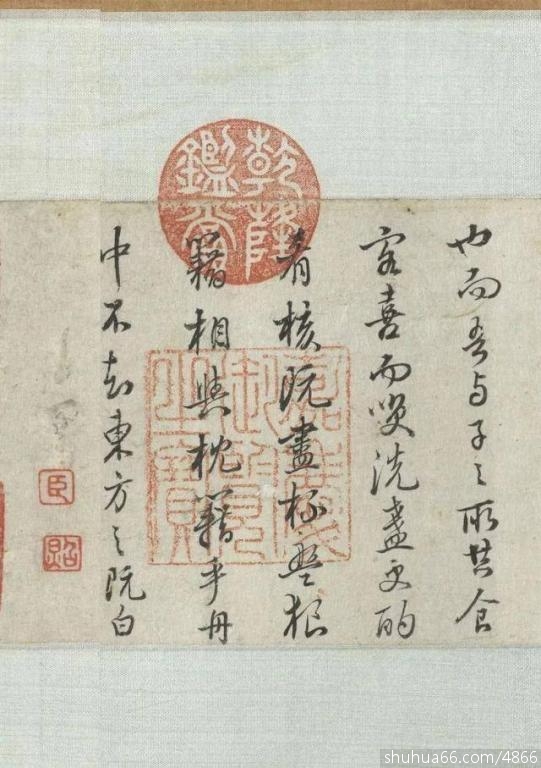 也而吾与子之所共食
客喜而咲洗盞更酌
肴核既盡杯盤狼
籍相與枕籍乎舟
中不知東方之既白
乾隆
鑑賞
嘉慶
御覽
之寶
臣
shuhua66.com/4866